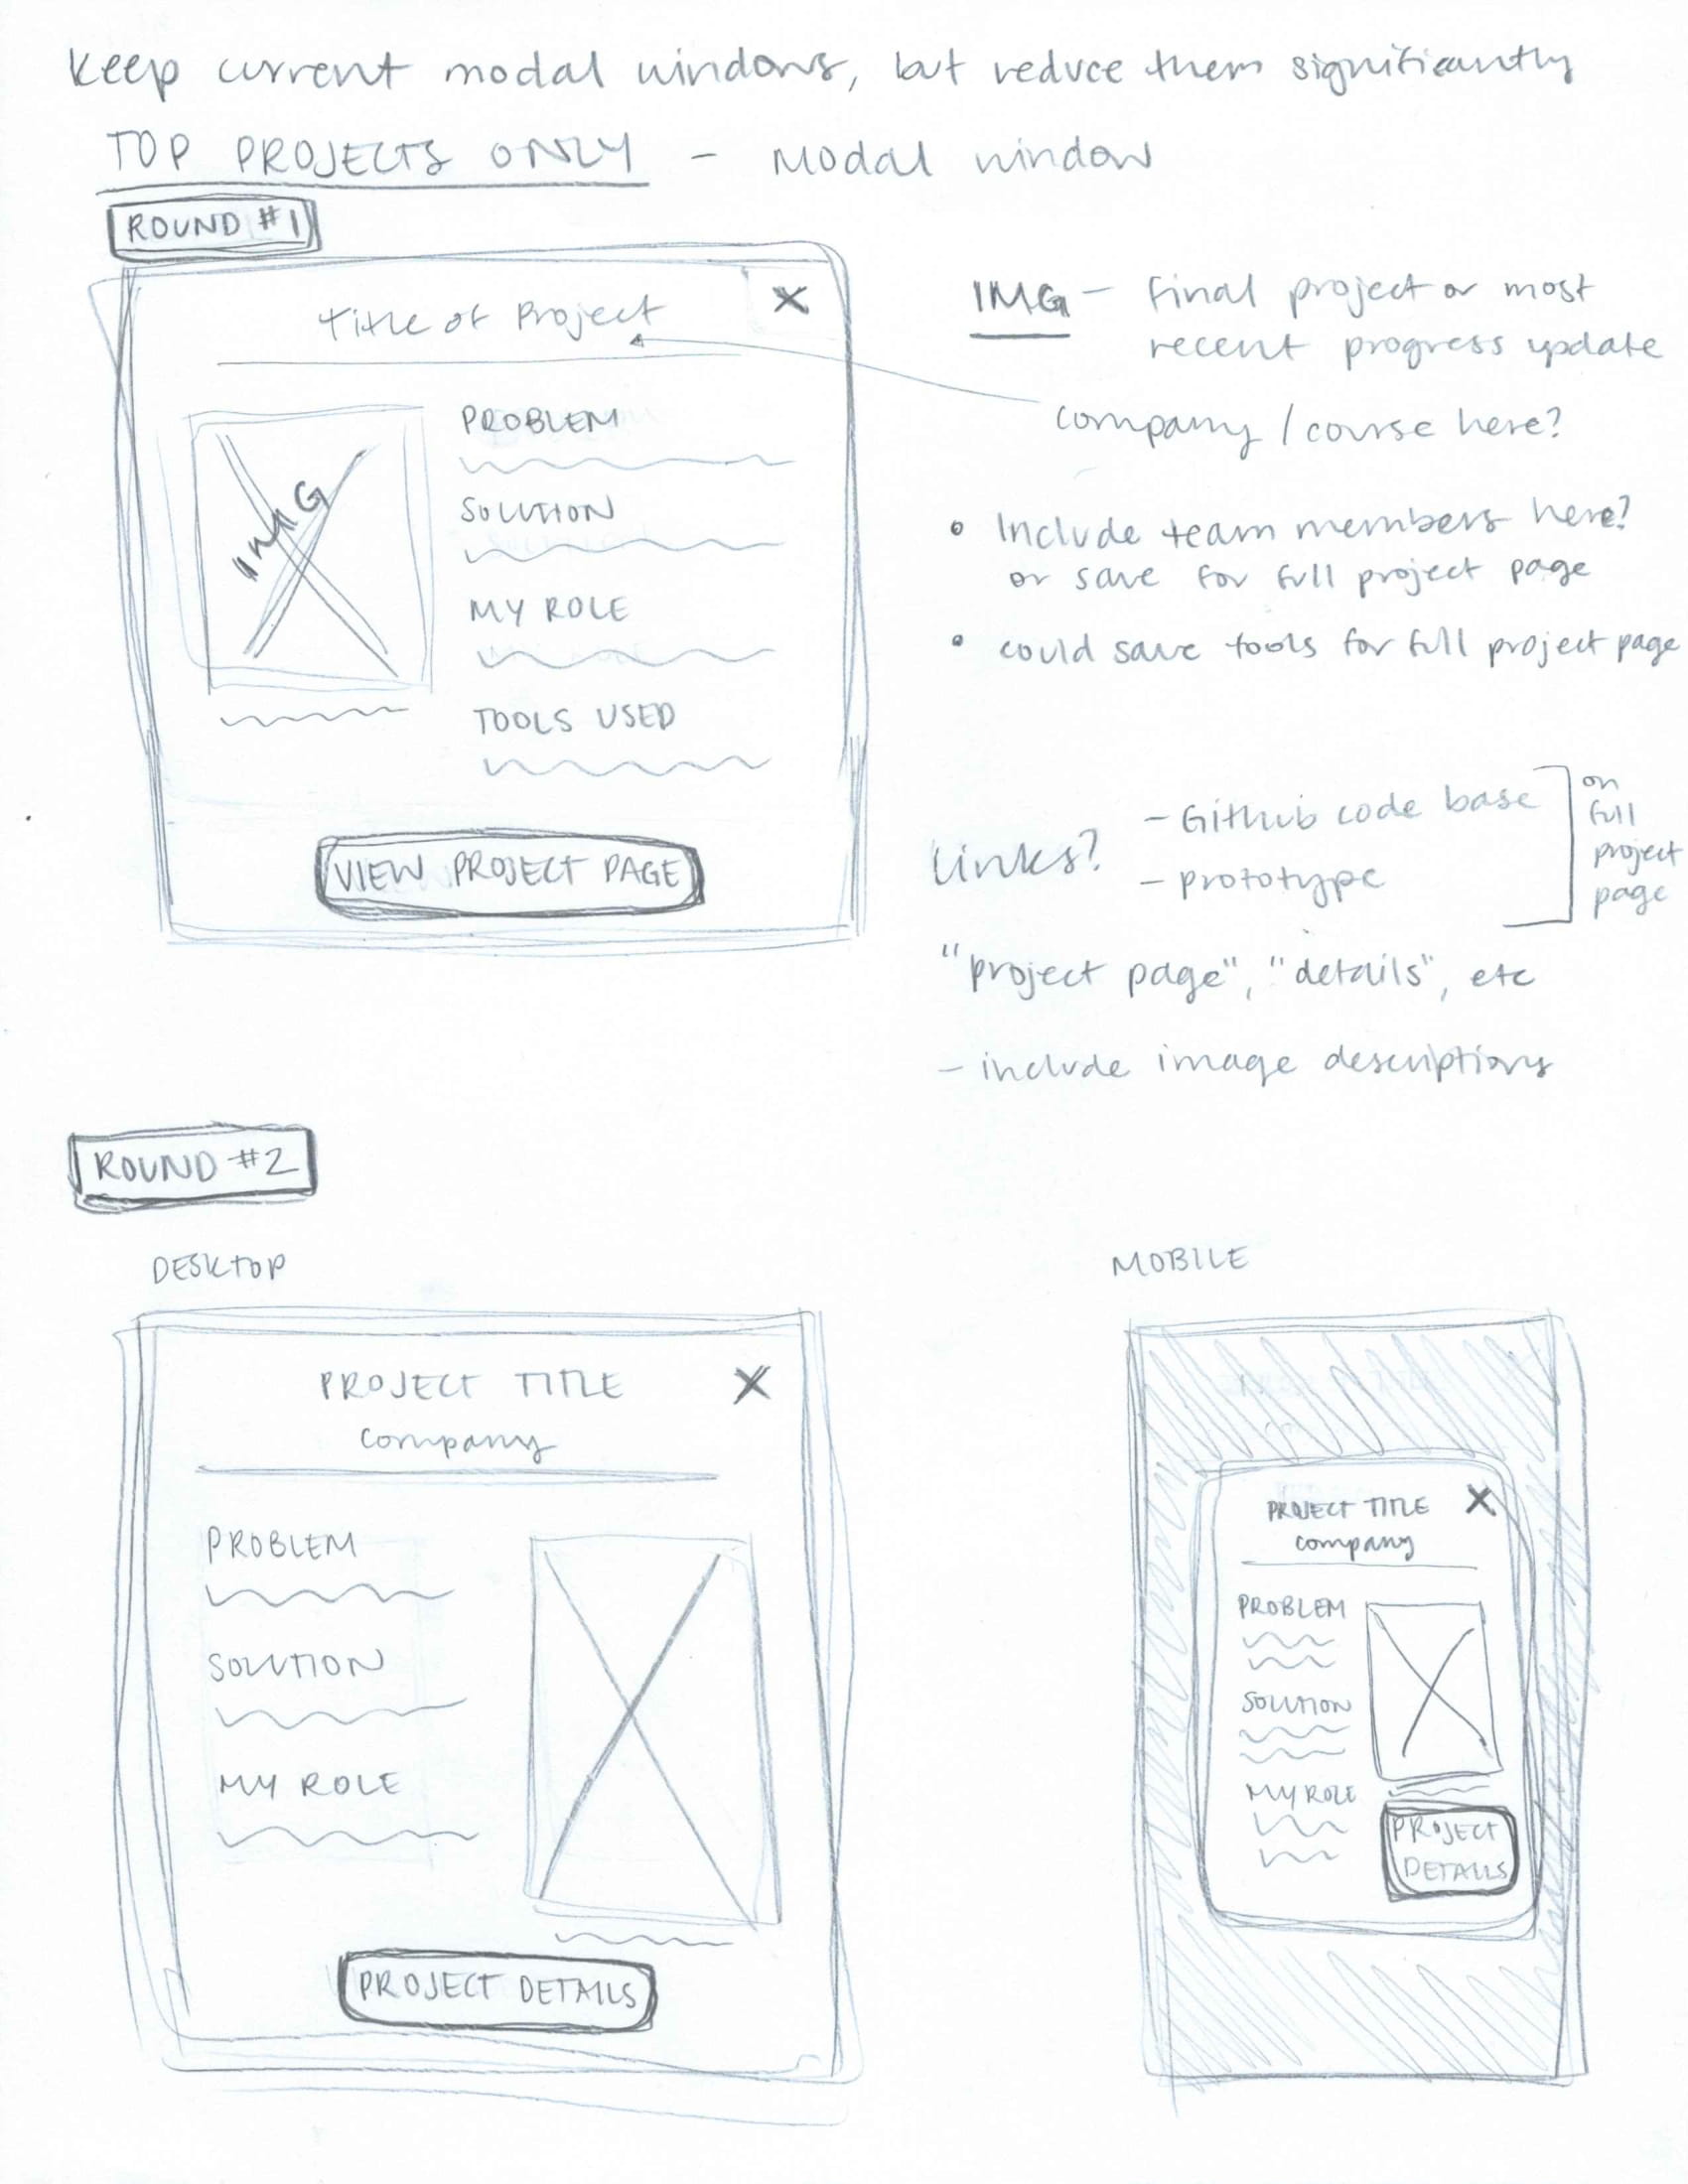 keep current modal windows, but reduce them significantly
TOP PROJECTS ONLY - Modal window
ROUND #1
Title of Project
X
IMG
PROBLEM
SOLUTION
MY ROLE
TOOLS USED
VIEW PROJECT PAGE
IMG - final project or most
recent progress update
company / course here?
• Include team members here?
or save for full project page
• could save tools for full project page
Links?
- Github code base
- prototype
on
full
project
page
"project page", "details", etc
- include image descriptions
ROUND #2
DESKTOP
PROJECT TITLE
X
company
PROBLEM
SOLUTION
MY ROLE
PROJECT DETAILS
MOBILE
PROJECT TITLE
X
company
PROBLEM
SOLUTION
MY ROLE
PROJECT
DETAILS